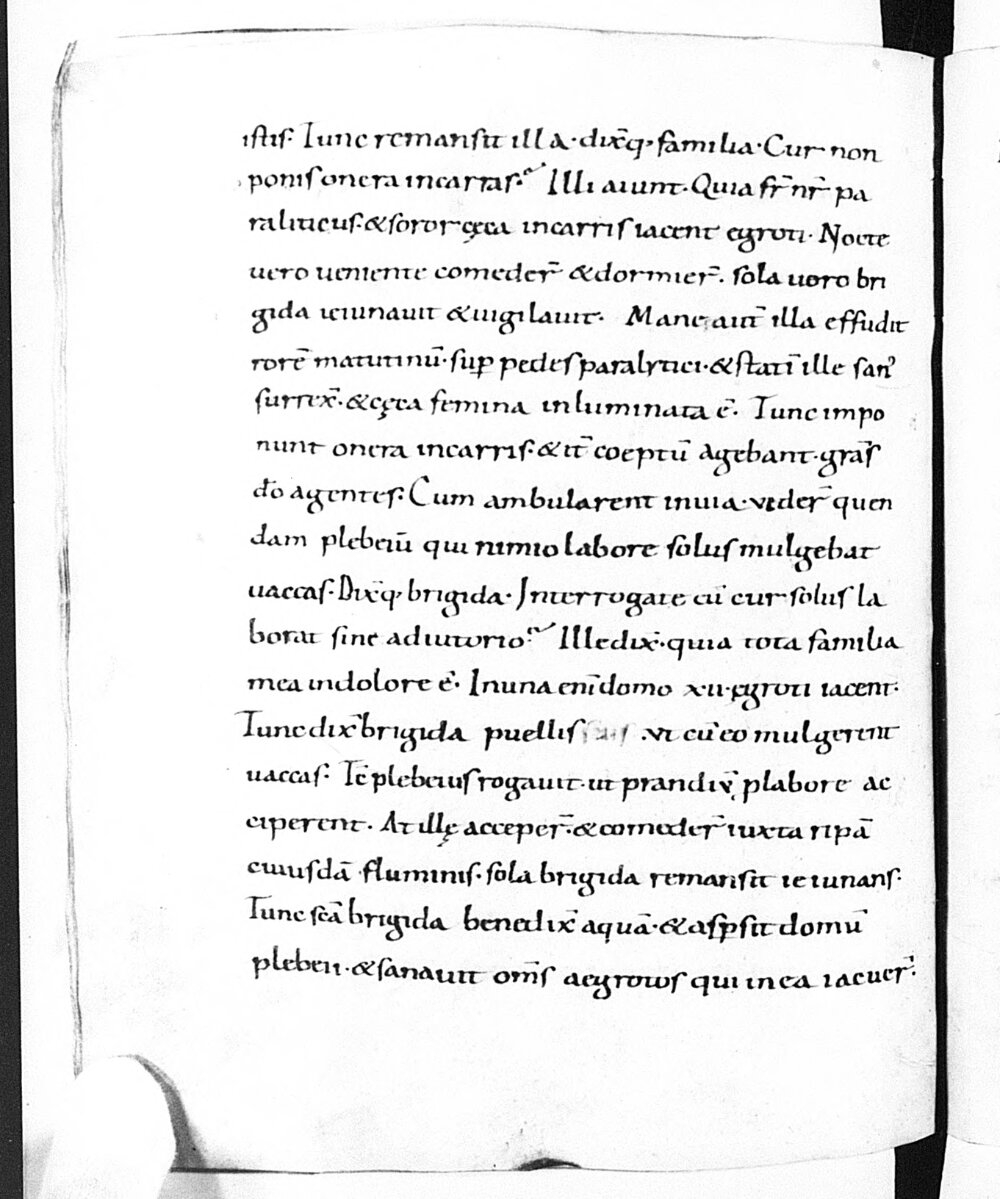 istis. Tunc remansit illa· dix̄q; familia· Cur non
ponis onera in carras·? Illi aiunt· Quia fr̄ nr̄ pa
raliticus· & soror cęca in carris iacent egroti· Nocte
uero ueniente comeder̄ & dormier̄. sola uero bri
gida ieiunauit & uigilauit· Mane aut̄ illa effudit
rorē matutinū· sup̱ pedes paralytici· & statī ille san'
surrex̄· & cęca femina inluminata ē· Tunc impo
nunt onera in carris· & it̄ coeptū agebant· grās
dō agentes: Cum ambularent in uia· veder̄ quen
dam plebeiū qui nimio labore solus mulgebat
uaccas· Dix̄q; brigida· Interrogate eū cur solus la
borat sine adiutorio·? Ille dix̄· quia tota familia
mea in dolore ē· In una enī domo xii· ęgroti iacent·
Tunc dix̄ brigida puellis suis .vt cū eo mulgerent
uaccas· Tc̄ plebeius rogauit· ut prandiv̄ p̱ labore ac
ciperent· At illę acceper̄· & comeder̄ iuxta ripā
cuiusdā fluminis· sola brigida remansit ieiunans·
Tunc scā brigida benedix̄ aquā· & asp̱sit domū
plebeii· & sanauit om̄s aegrotos qui in ea iacuer̄·